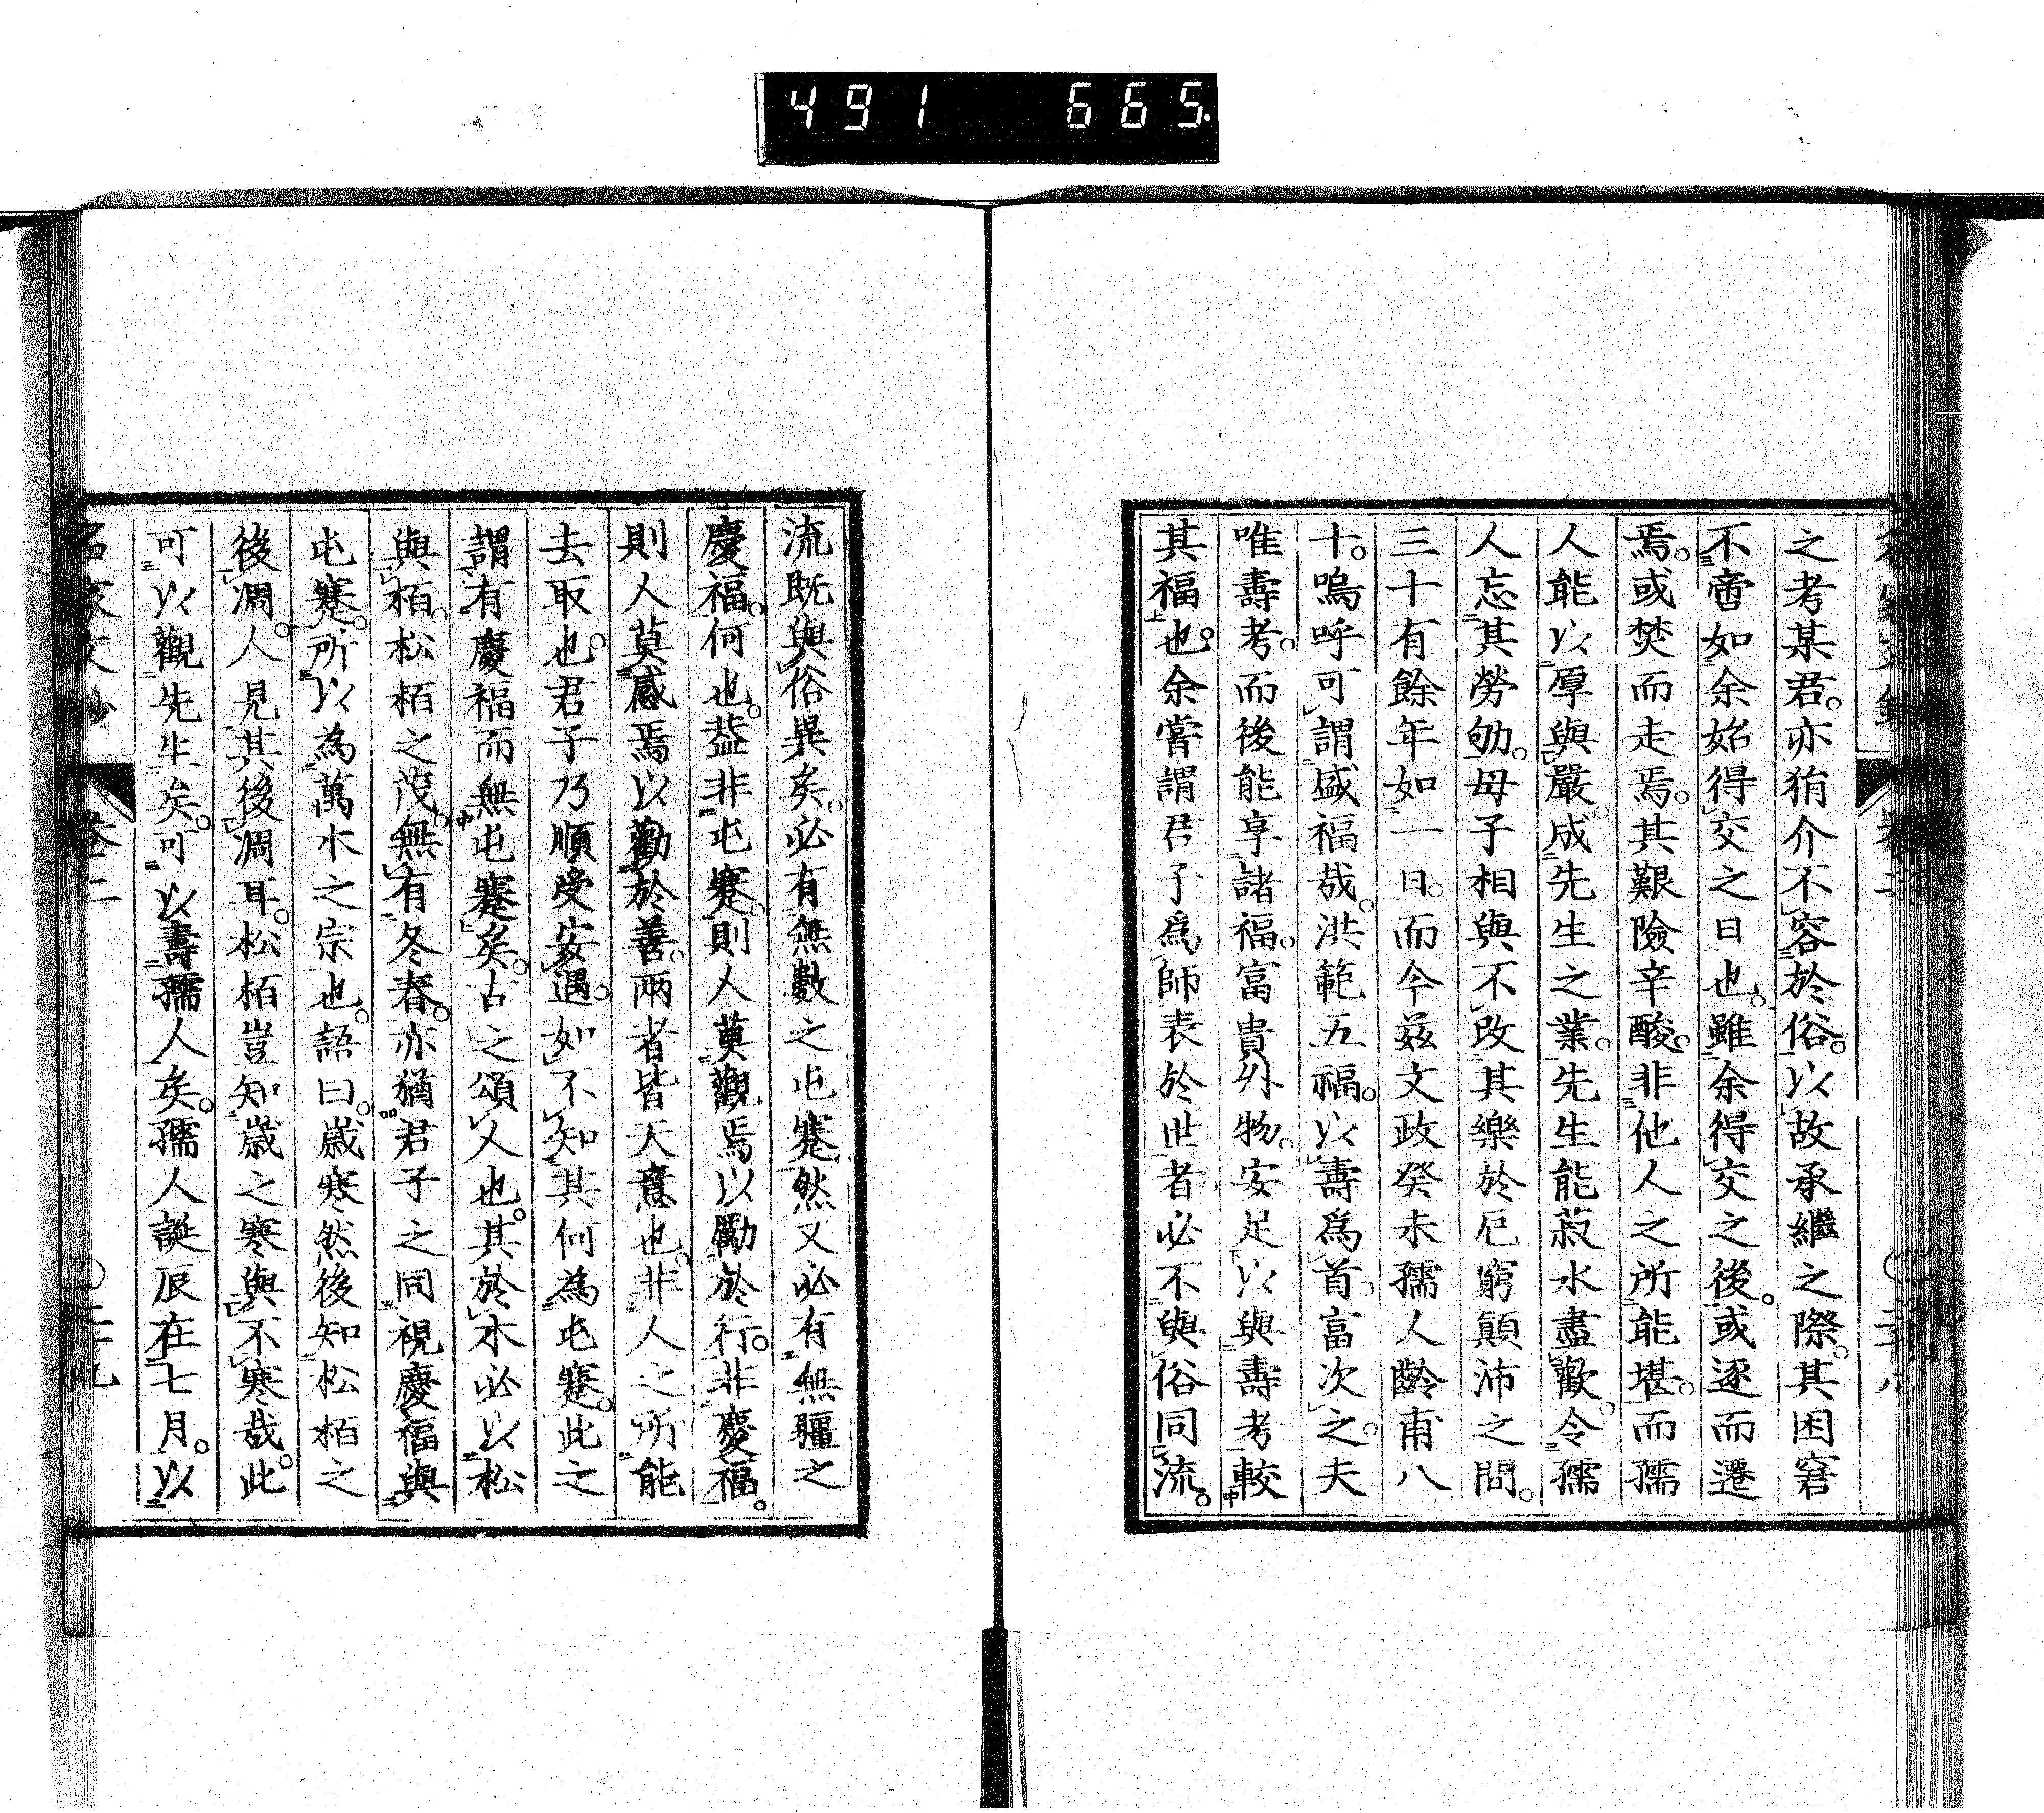 491 665.
之考某君。亦狷介不容於俗。以故承繼之際。其困窘
不啻如余始得交之日也。雖余得交之後。或逐而遷
焉。或焚而走焉。其艱險辛酸。非他人之所能堪。而孺
人能以厚與嚴。成先生之業。先生能菽水盡歡。令孺
人忘其勞劬。母子相與不改其樂於厄窮顛沛之間。
三十有餘年如一日。而今茲文政癸未孺人齡甫八
十。嗚呼可謂盛福哉。洪範五福。以壽爲首富次之。夫
唯壽考。而後能享諸福。富貴外物。安足以與壽考較
其福也。余嘗謂君子爲師表於世者必不與俗同流。
流既與俗異矣。必有無數之屯蹇然又必有無疆之
慶福。何也。葢非屯蹇。則人莫觀焉以勵於行。非慶福。
則人莫感焉以勸於善。兩者皆天意也。非人之所能
去取也。君子乃順受安遇。如不知其何為屯蹇。此之
謂有慶福而無屯蹇矣。古之頌人也。其於木必以松
與栢。松栢之茂。無有冬春。亦猶君子之同視慶福與
屯蹇。所以為萬木之宗也。語曰。歳寒然後知松栢之
後凋。人見其後凋耳。松栢豈知歳之寒與不寒哉。此
可以觀先生矣。可以壽孺人矣。孺人誕辰在七月。以
名家文抄 卷二 二十九